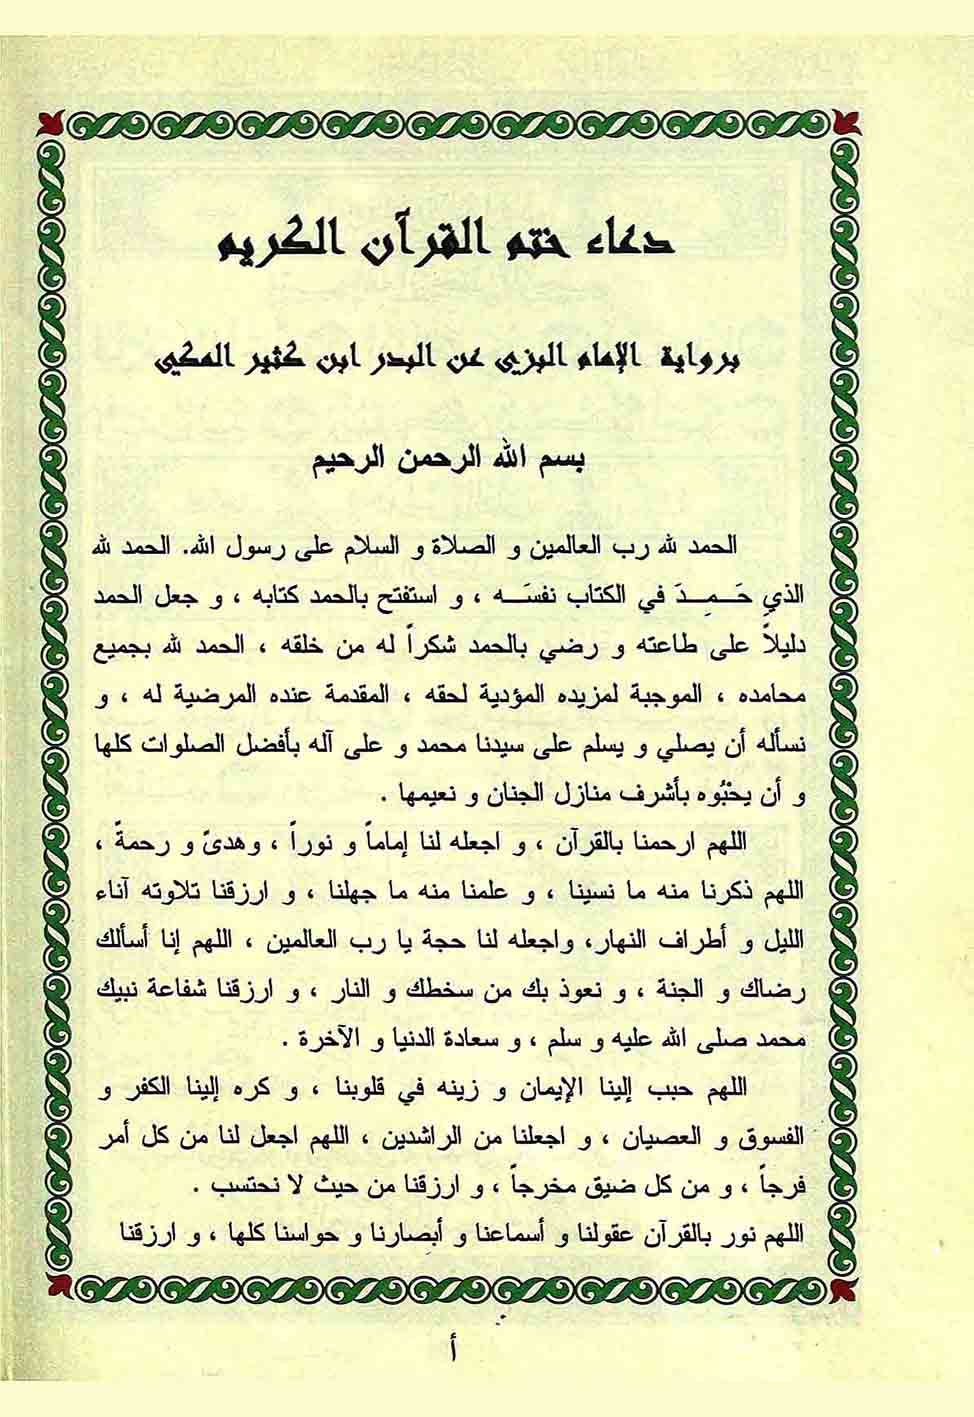 دعاء ختم القرآن الكريم
برواية الإمام البزي عن البدر ابن كثير المكي
بسم الله الرحمن الرحيم
الحمد لله رب العالمين و الصلاة و السلام على رسول الله. الحمد لله
الذي حَـمِـدَ في الكتاب نفسَـه ، و استفتح بالحمد كتابه ، و جعل الحمد
دليلاً على طاعته و رضي بالحمد شكراً له من خلقه ، الحمد لله بجميع
محامده ، الموجبة لمزيده المؤدية لحقه ، المقدمة عنده المرضية له ، و
نسأله أن يصلي و يسلم على سيدنا محمد و على آله بأفضل الصلوات كلها
و أن يحْبُوه بأشرف منازل الجنان و نعيمها .
اللهم ارحمنا بالقرآن ، و اجعله لنا إماماً و نوراً ، وهدىً و رحمةً ،
اللهم ذكرنا منه ما نسينا ، و علمنا منه ما جهلنا ، و ارزقنا تلاوته آناء
الليل و أطراف النهار، واجعله لنا حجة يا رب العالمين ، اللهم إنا أسألك
رضاك و الجنة ، و نعوذ بك من سخطك و النار ، و ارزقنا شفاعة نبيك
محمد صلى الله عليه و سلم ، و سعادة الدنيا و الآخرة .
اللهم حبب إلينا الإيمان و زينه في قلوبنا ، و كره إلينا الكفر و
الفسوق و العصيان ، و اجعلنا من الراشدين ، اللهم اجعل لنا من كل أمر
فرجاً ، و من كل ضيق مخرجاً ، و ارزقنا من حيث لا نحتسب .
اللهم نور بالقرآن عقولنا و أسماعنا و أبصارنا و حواسنا كلها ، و ارزقنا
أ